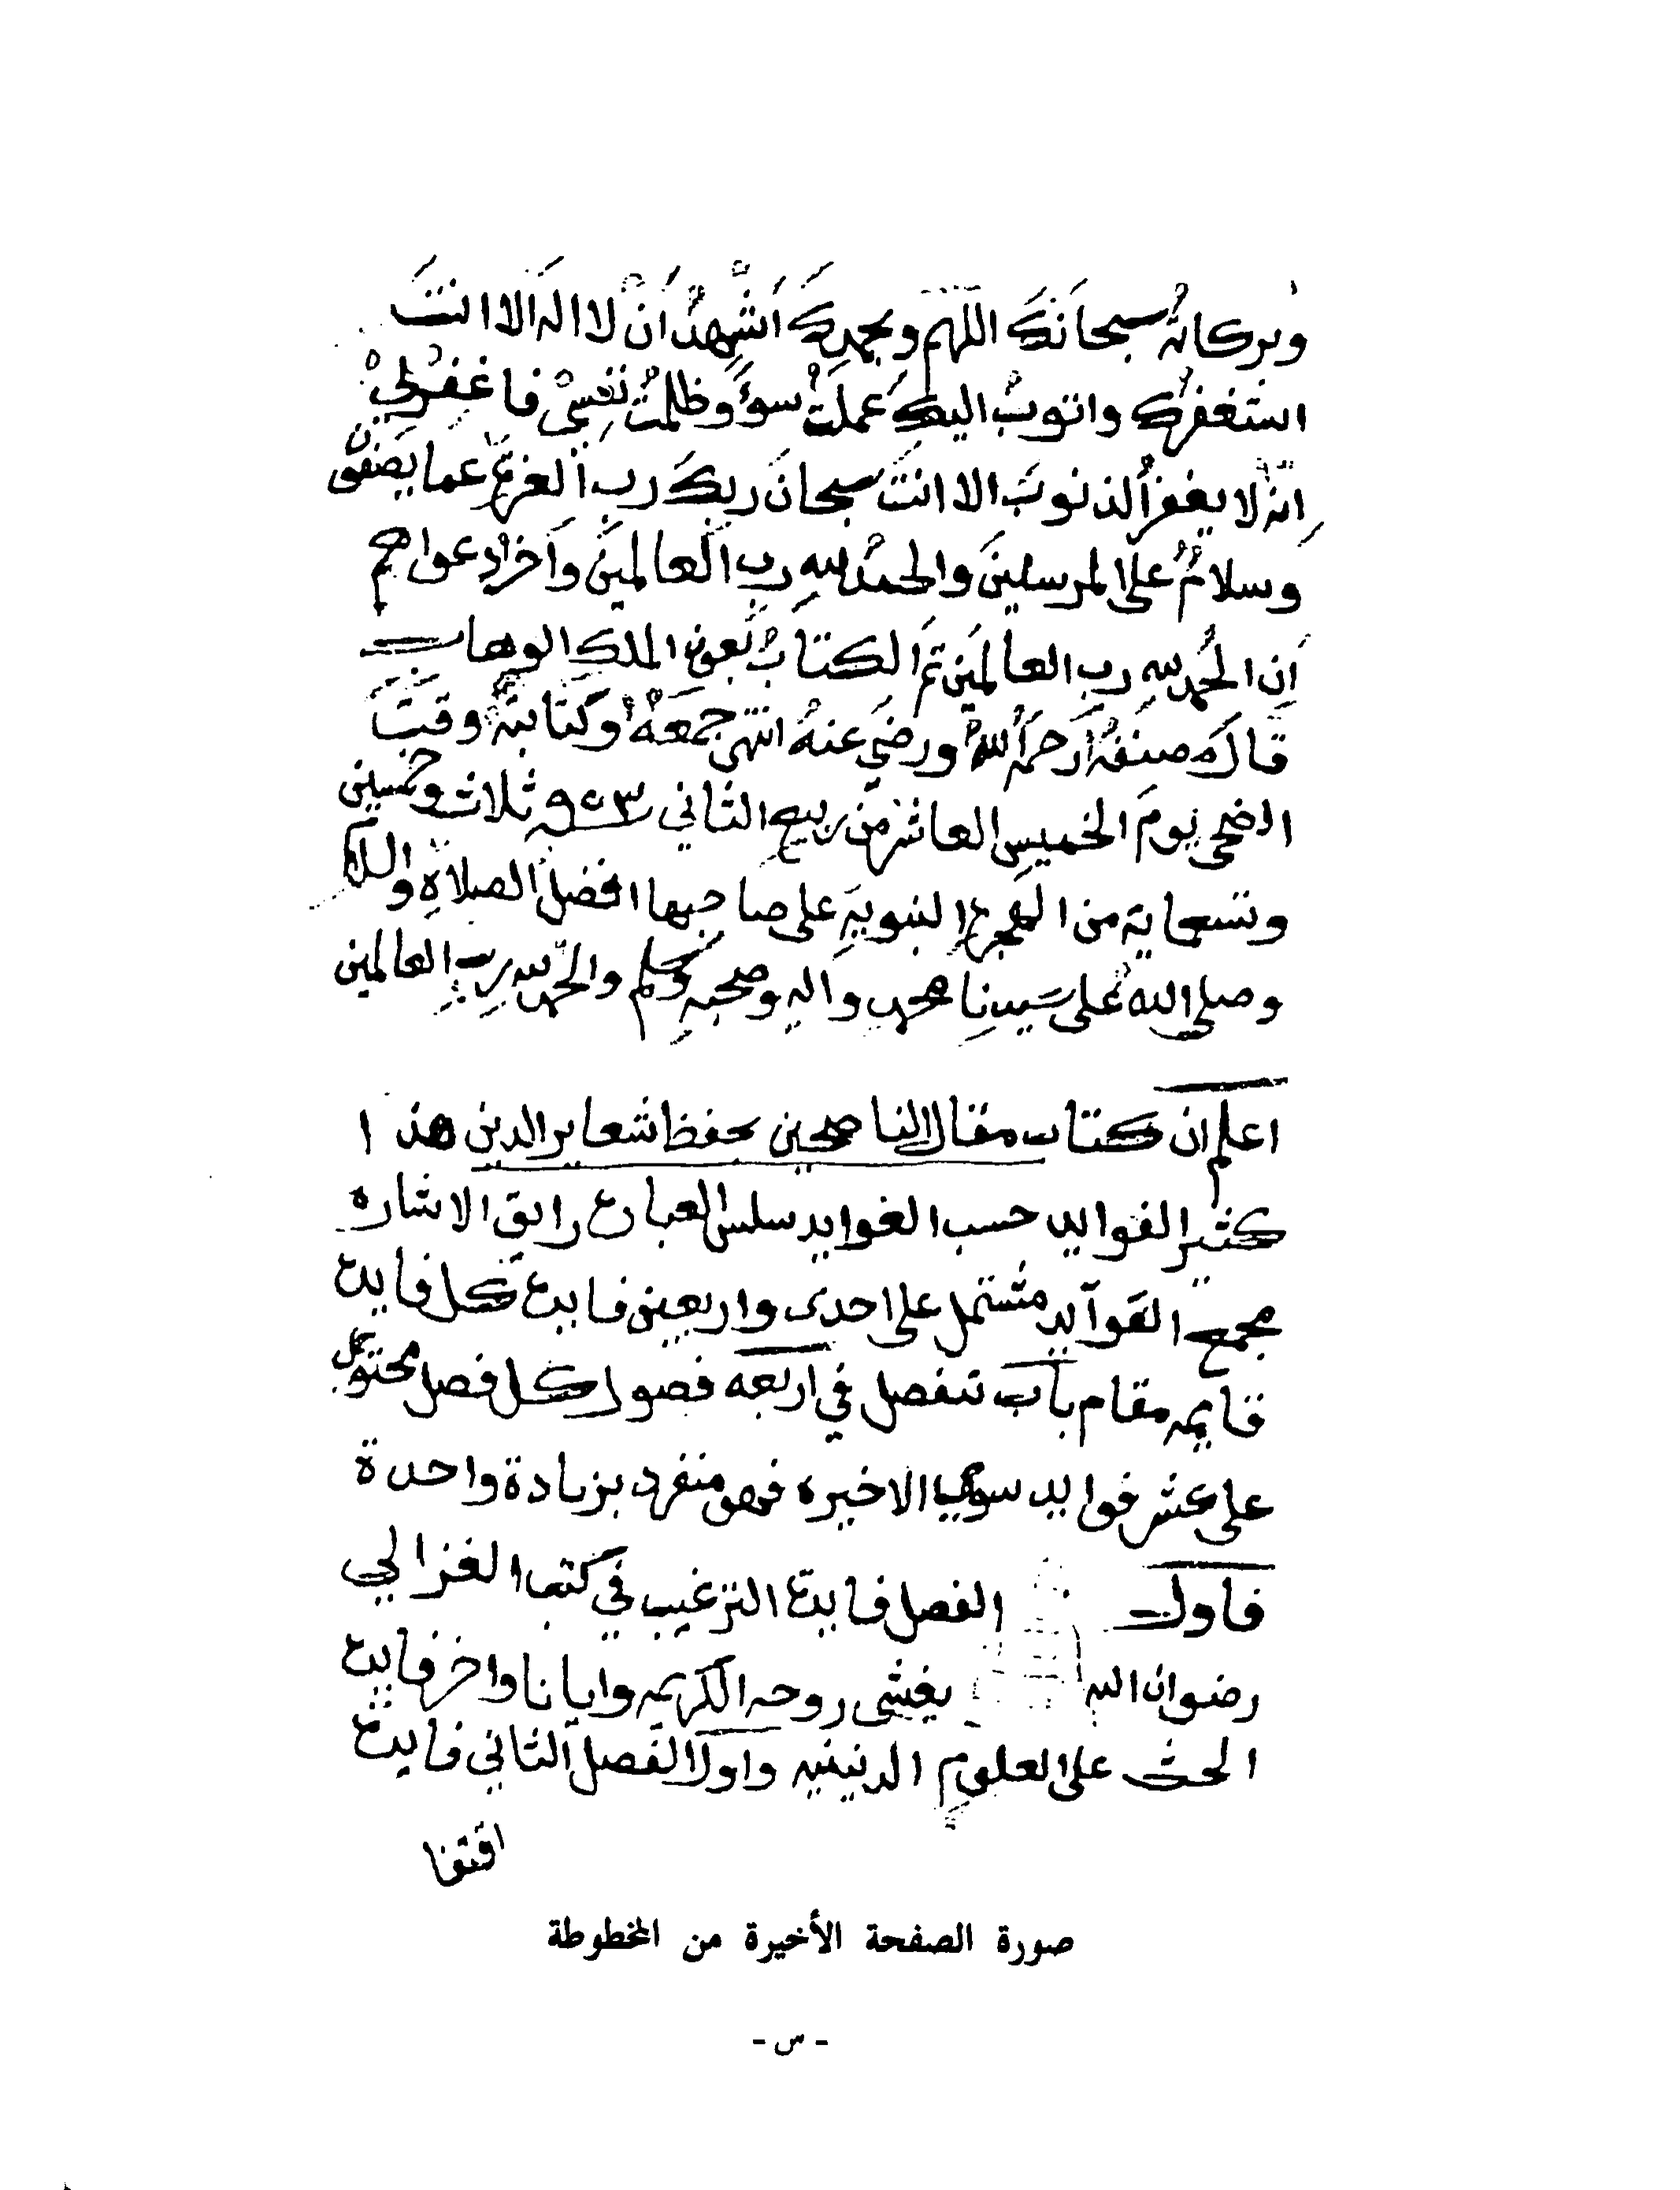 وبركاتهُ سبحانَكَ اللهم وبحمدِكَ اَشْهِدُ اَنْ لا اله الا انتَ
استغفرُك واتوبُ اليكَ عَملتُ سوءً وظلمتُ نفسِيْ فاغفِرْلِيْ
اِنهُ لا يغفرُ الذنوبَ الا انتَ سبحانَ ربِكَ ربِ العزةِ عما يصفون
وسلامٌ على المرسلينَ والحمدُ للهِ ربِ العالمينَ واَخرُ دعواهم
اَنِ الحمدُ للهِ ربِ العالمَينَ تم الكتابُ بعون الملك الوهاب
قاله مصنفهُ رَحمَهُ اللهُ ورضيَ عنهُ انتهى جمعَهُ وكتابتهُ وقتَ
الضحى يومَ الخميسِ العاشر من ربيعِ الثاني ٩٥٣ ثلاث وخمسين
وتسعماية من الهجرةِ النبويةِ على صاحبها افضل الصلاةِ والسلام
وصلى اللهُ على سَيدِنا محمدٍ والهِ وصحبهِ وسلم والحمد للهِ ربِ العالمين
اعلم ان كتاب مقال الناصحين بحفظ شعاير الدين هذا
كثير الفوايد حسب العوايد سلس العبارة رايق الاشاره
مجمع القوآيد مشتمل على احدى واربعين فايدة كل فايدة
قايمه مقام باب تنفصل في اربعه فصول كل فصل محتوٍ
على عشر فوايد سوى الاخيره فهو منفرد بزيادة واحدة
فاول الفصل فايدة الترغيب في كتب الغزالي
رضوان الله يغشى روحه الكريمه وايانا واخر فايدة
الحث على العلومِ الدينيه واول الفصل الثاني فايدة
اقتفا
صورة الصفحة الأخيرة من المخطوطة
- س -